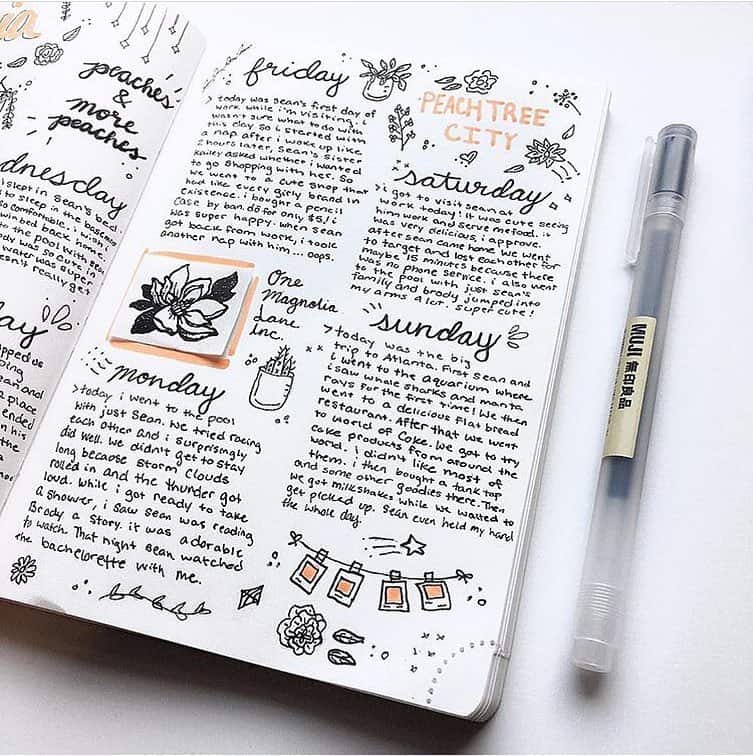 ia
peaches
&
more
peaches
dnesday
i slept in sean's bed.
to sleep in the baseme
so comfortable. i wish
bed back home.
to the pool with sean
was so cute in
water was super
really get
ay
we
ping
and
a place
ended
in his
the
friday
> today was sean's first day of
work while i'm visiting. i
wasn't sure what to do with
this day so i started with
a nap after i woke up like
2 hours later, sean's sister
kailey asked whether i wanted
to go shopping with her. so
we went to a cute shop that
had like every girly brand in
existence. i bought a pencil
case by ban.dō for only $5! i
was super happy. when sean
got back from work, i took
another nap with him... oops.
One
Magnolia
Lane
Inc.
monday
> today i went to the pool
with just sean. we tried racing
each other and i surprisingly
did well. we didn't get to stay
long because storm clouds
rolled in and the thunder got
loud. while i got ready to take
a shower, i saw sean was reading
Brody a story. it was adorable
to watch. that night sean watched
the bachelorette with me.
PEACHTREE
CITY
saturday
> i got to visit sean at
work today! it was cute seeing
him work and serve me food. it
was very delicious, i approve.
after sean came home we went
to target and lost each other for
maybe 15 minutes because there
was no phone service. i also went
to the pool with just sean's
family and brody jumped into
my arms a lot. super cute!
sunday
> today was the big
trip to Atlanta. First sean and
i went to the aquarium where
i saw whale sharks and manta
rays for the first time! We then
went to a delicious flat bread
restaurant. After that we went
to World of Coke. We got to try
coke products from around the
world. i didn't like most of
them. i then bought a tank top
and some other goodies there. Then
we got milkshakes while we waited to
get picked up. Sean even held my hand
the whole day.
MUJI 無印良品